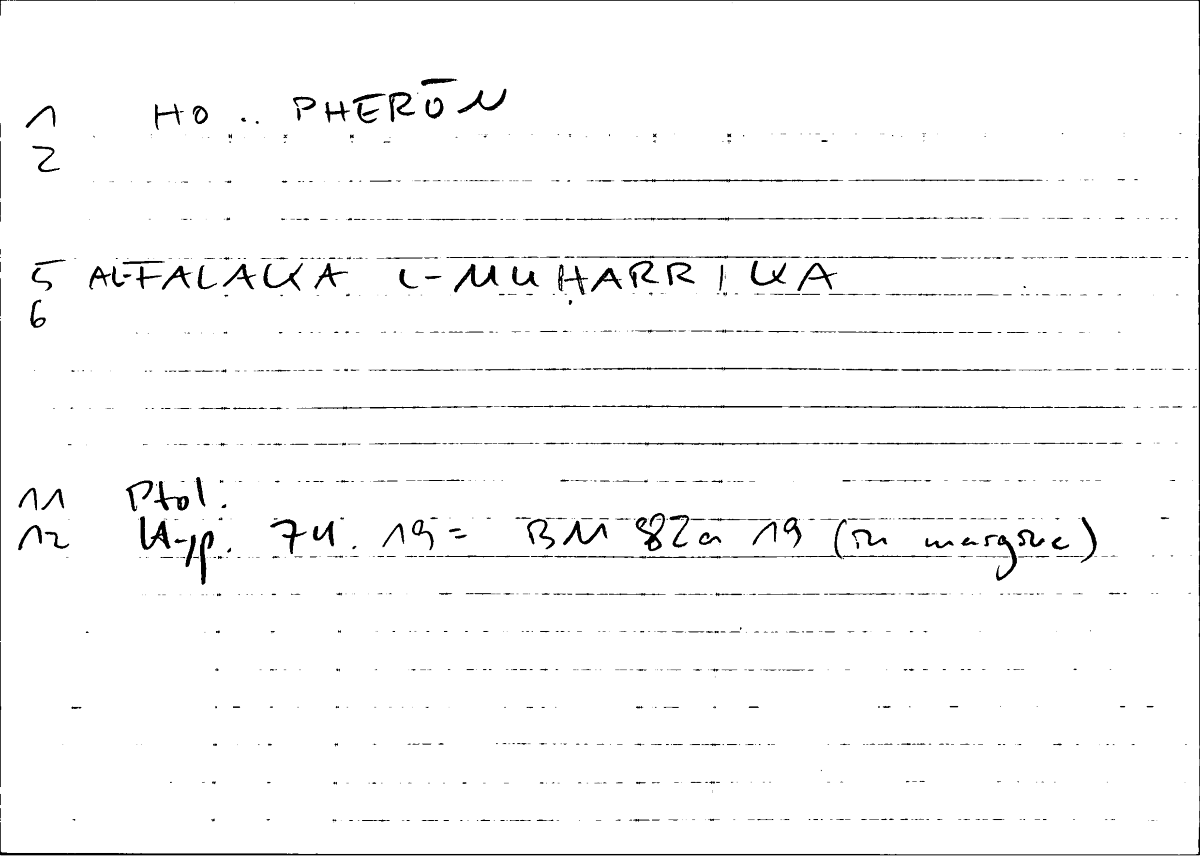 1 HO .. PHERŌN
2
5 AL-FALAKA L-MUḤARRIKA
6
11 Ptol.
12 Hyp. 74. 19 = BM 82a 19 (in margine)